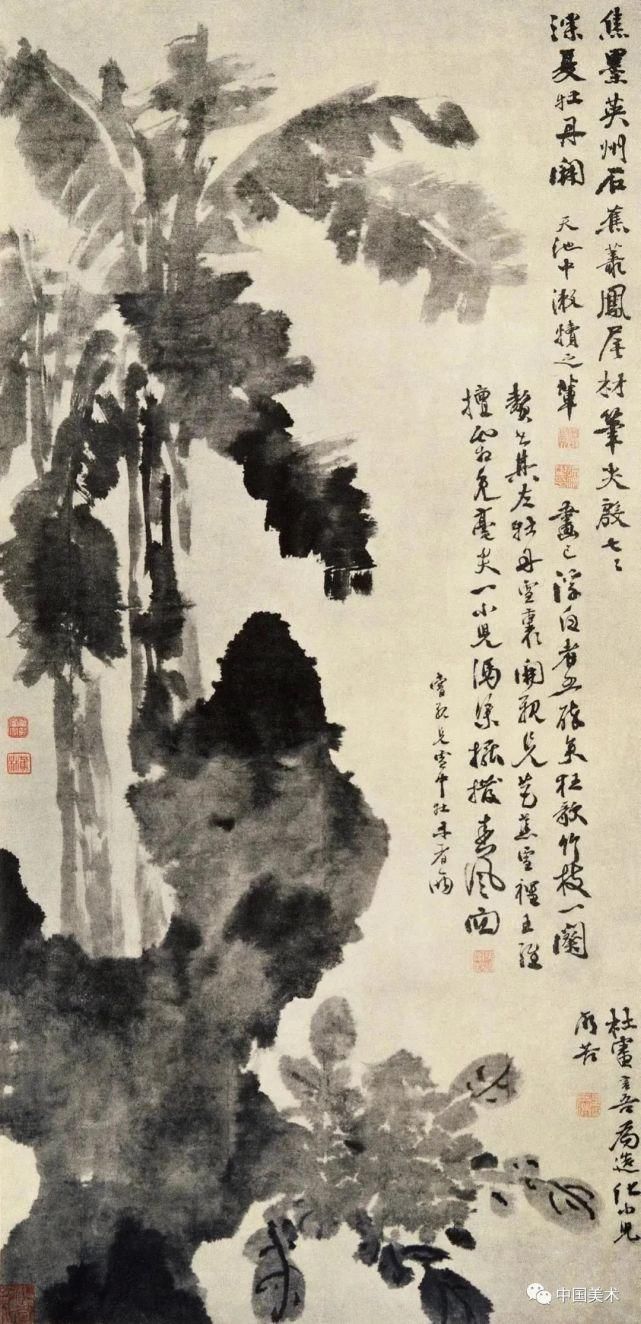 焦墨英州石蕉叢鳳尾材筆尖殷七七
深夏牡丹開 天池中漱犢之輩
畫已浮白者五醉矣狂歌竹枝一闋
贅書其左牡丹雪裏開親見芭蕉雪裡王維
擅霜兔毫尖一小兒馮渠擺撥春風面
嘗親見雪中牡丹者兩
杜審言吾為造化小兒
所苦
中国美术